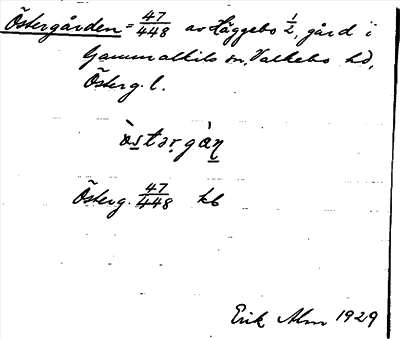 Östergården = 47/448 av Häggebo 1/2, gård i
Gammalkils sn, Valkebo hd,
Österg. l.
ö̀stərgɑ̀n
Österg. 47/448 kb
Erik Alm 1929